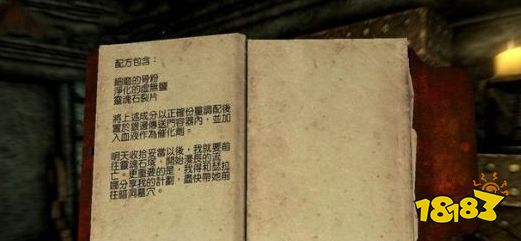 配方包含：
細磨的骨粉
淨化的虛無鹽
靈魂石裂片
將上述成分以正確份量調配後
置於銀邊傳送門容器內，並加
入血液作為催化劑。
明天收拾妥當以後，我就要前
往靈魂石塚，開始漫長的流
亡。更重要的是，我得和瑟拉
娜分享我的計劃，盡快帶她前
往暗洞墓穴。
18183